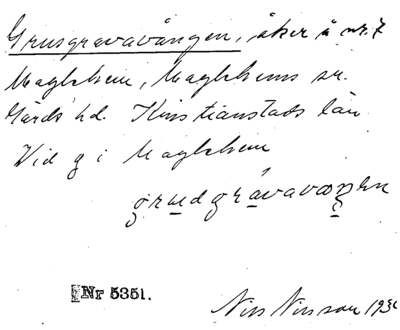 Grusgravavången, åker å nr. 7
Maglehem, Maglehems sn.
Gärds hd. Kristianstads län
Vid g i Maglehem
Nr 5351.
Nils Nilsson 193